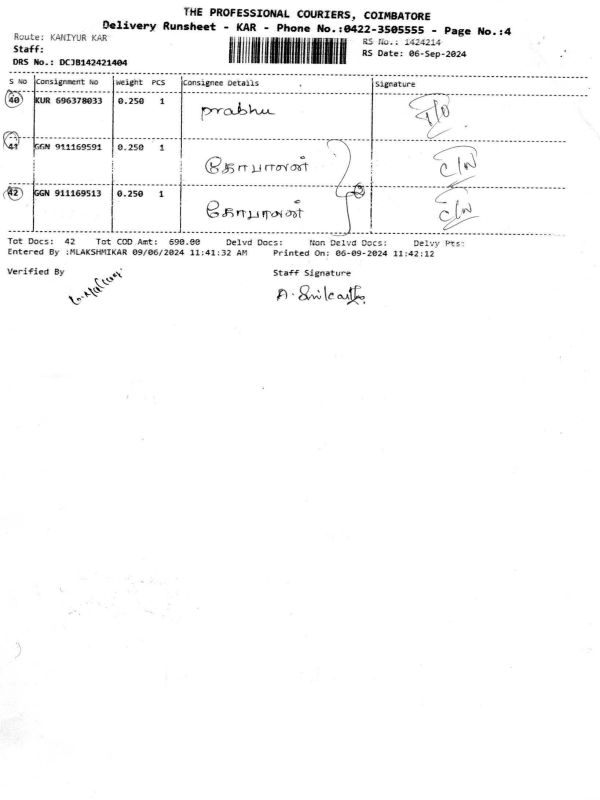 THE PROFESSIONAL COURIERS, COIMBATORE
Delivery Runsheet - KAR - Phone No.:0422-3505555 - Page No.:4
Route: KANIYUR KAR
RS No.: 1424214
Staff:
RS Date: 06-Sep-2024
DRS No.: DCJB142421404
S No Consignment No Weight PCS Consignee Details Signature
40 KUR 696378033 0.250 1 prabhu
41 GGN 911169591 0.250 1 கோபாலன்
42 GGN 911169513 0.250 1 கோபாலன்
Tot Docs: 42 Tot COD Amt: 690.00 Delvd Docs: Non Delvd Docs: Delvy Pts:
Entered By :MLAKSHMIKAR 09/06/2024 11:41:32 AM Printed On: 06-09-2024 11:42:12
Verified By Staff Signature